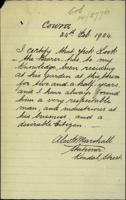 Cowra
24th Feb 1904.
I certify that York Lock
the bearer, has to my
knowledge been residing
at his garden at this town
for two and a half years,
and I have always found
him a very respectable
man, and industrious at
his business, and a
desirable Citizen.
Marshall
Kendal Street